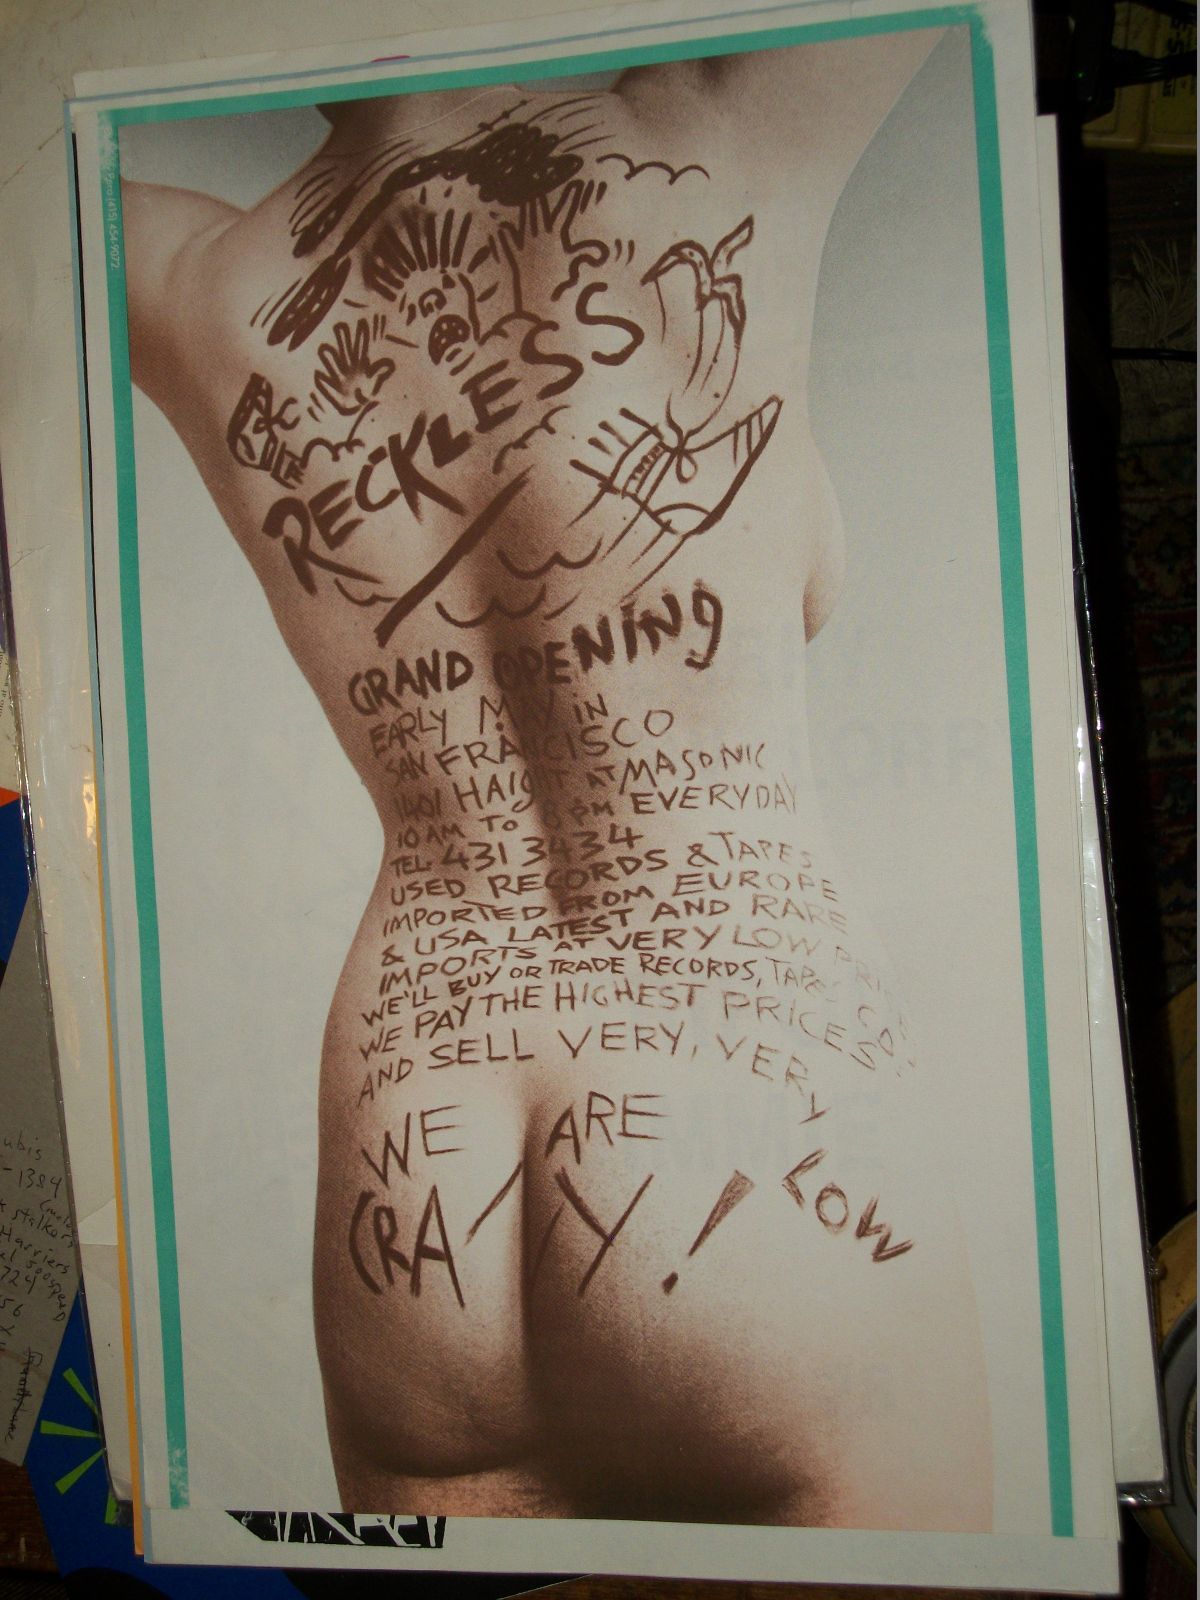 RECKLESS
GRAND OPENING
EARLY MAY IN
SAN FRANCISCO
1401 HAIGHT AT MASONIC
10 AM TO 8 PM EVERYDAY
TEL. 431 3434
USED RECORDS & TAPES
IMPORTED FROM EUROPE
& USA LATEST AND RARE
IMPORTS AT VERY LOW PRICES
WE'LL BUY OR TRADE RECORDS, TAPES
WE PAY THE HIGHEST PRICES
AND SELL VERY, VERY LOW
WE ARE
CRAZY!
(415) 454-9072
ubis
-1384
stalkers
Harriers